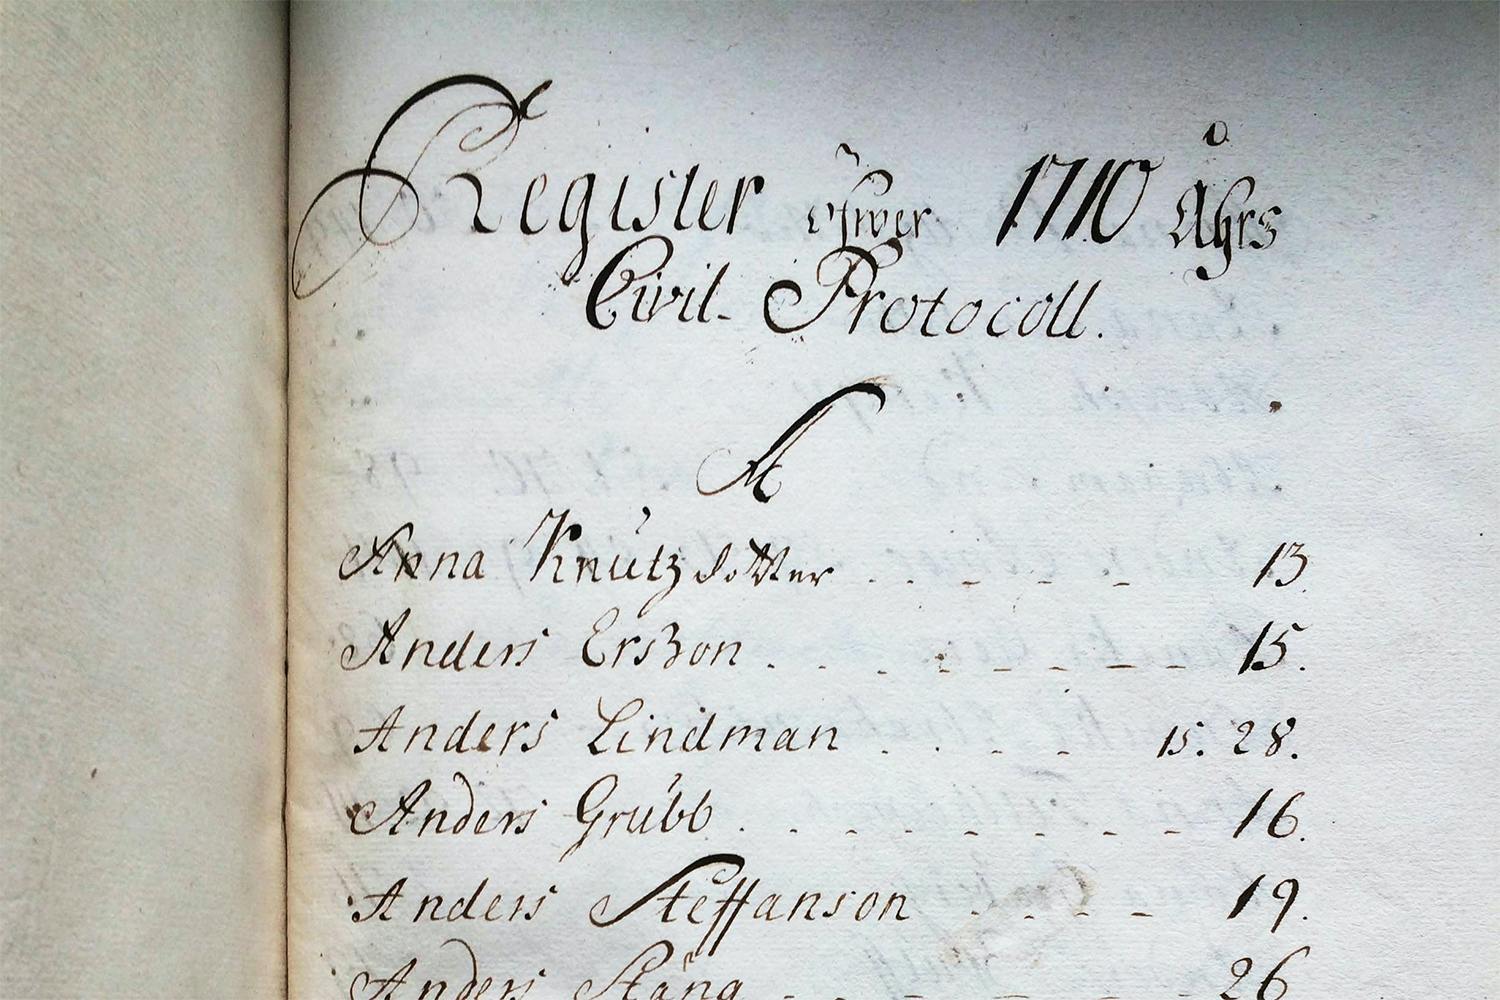 Register öfwer 1710 Åhrs
Civil-Protocoll.
A
Anna Knutzdotter . . - - - 13.
Anders Ersson . . . - - - - - - 15.
Anders Lindman . . . - 15. 28.
Anders Grubb . . - - - - - - - 16.
Anders Steffanson . - - - 19.
Anders Stång - - - - - - 26